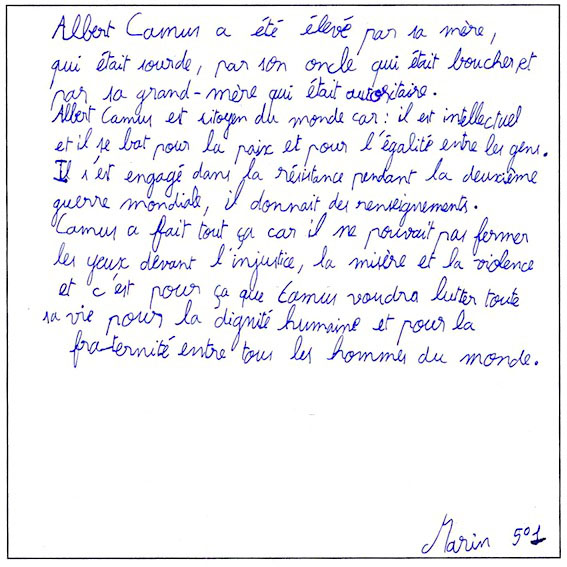 Albert Camus a été élevé par sa mère,
qui était sourde, par son oncle qui était boucher et
par sa grand-mère qui était autoritaire.
Albert Camus est citoyen du monde car : il est intellectuel
et il se bat pour la paix et pour l'égalité entre les gens.
Il s'est engagé dans la résistance pendant la deuxième
guerre mondiale, il donnait des renseignements.
Camus a fait tout ça car il ne pouvait pas fermer
les yeux devant l'injustice, la misère et la violence
et c'est pour ça que Camus voudra lutter toute
sa vie pour la dignité humaine et pour la
fraternité entre tous les hommes du monde.
Marin 5°1